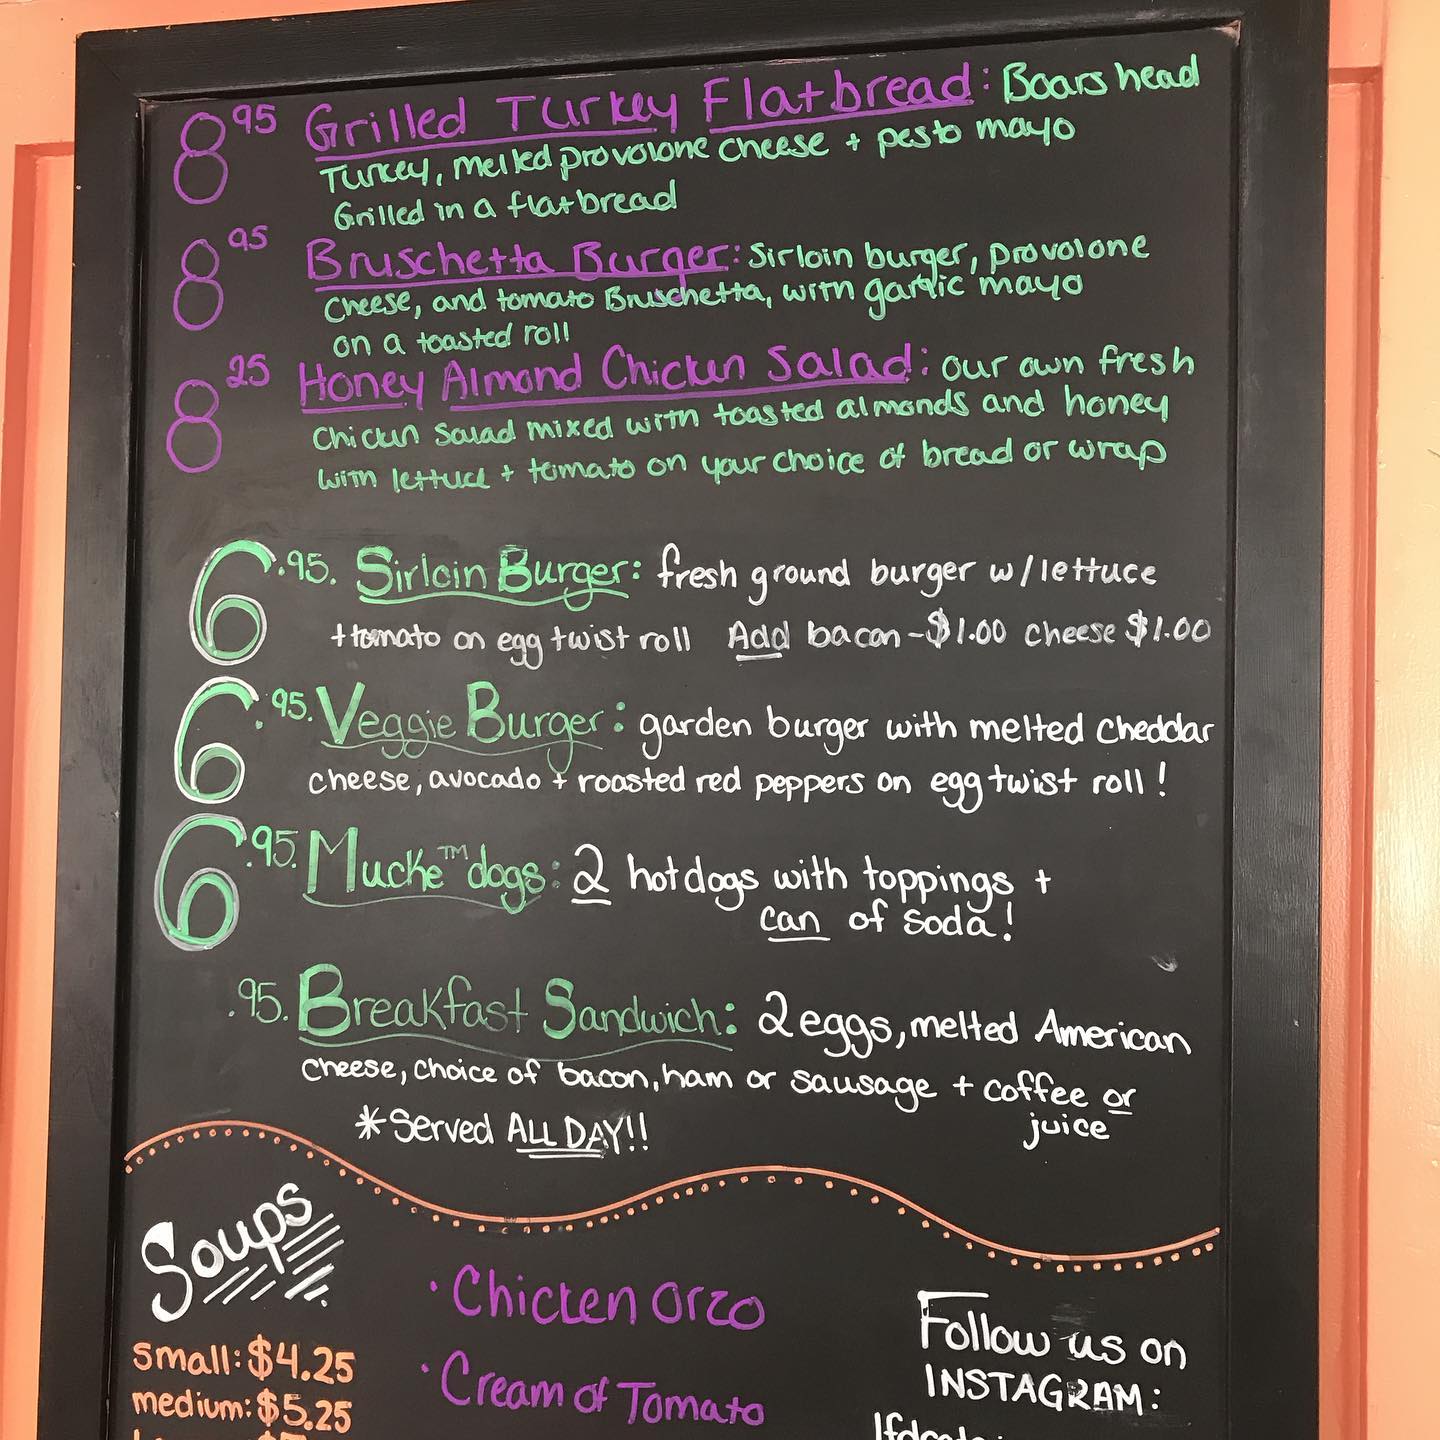 8 95 Grilled Turkey Flatbread: Boars head
Turkey, melted provolone cheese + pesto mayo
Grilled in a flatbread
8 95 Bruschetta Burger: Sirloin burger, provolone
cheese, and tomato Bruschetta, with garlic mayo
on a toasted roll
8 25 Honey Almond Chicken Salad: our own fresh
Chicken Salad mixed with toasted almonds and honey
with lettuce + tomato on your choice of bread or wrap
6.95. Sirloin Burger: fresh ground burger w/lettuce
+tomato on egg twist roll Add bacon-$1.00 cheese $1.00
6.95. Veggie Burger: garden burger with melted cheddar
cheese, avocado + roasted red peppers on egg twist roll!
6.95. Mucke™dogs: 2 hotdogs with toppings +
can of soda!
.95. Breakfast Sandwich: 2 eggs, melted American
cheese, choice of bacon, ham or sausage + coffee or
juice
*Served ALL DAY!!
Soups
small: $4.25
medium: $5.25
· Chicken Orzo
· Cream of Tomato
Follow us on
INSTAGRAM: